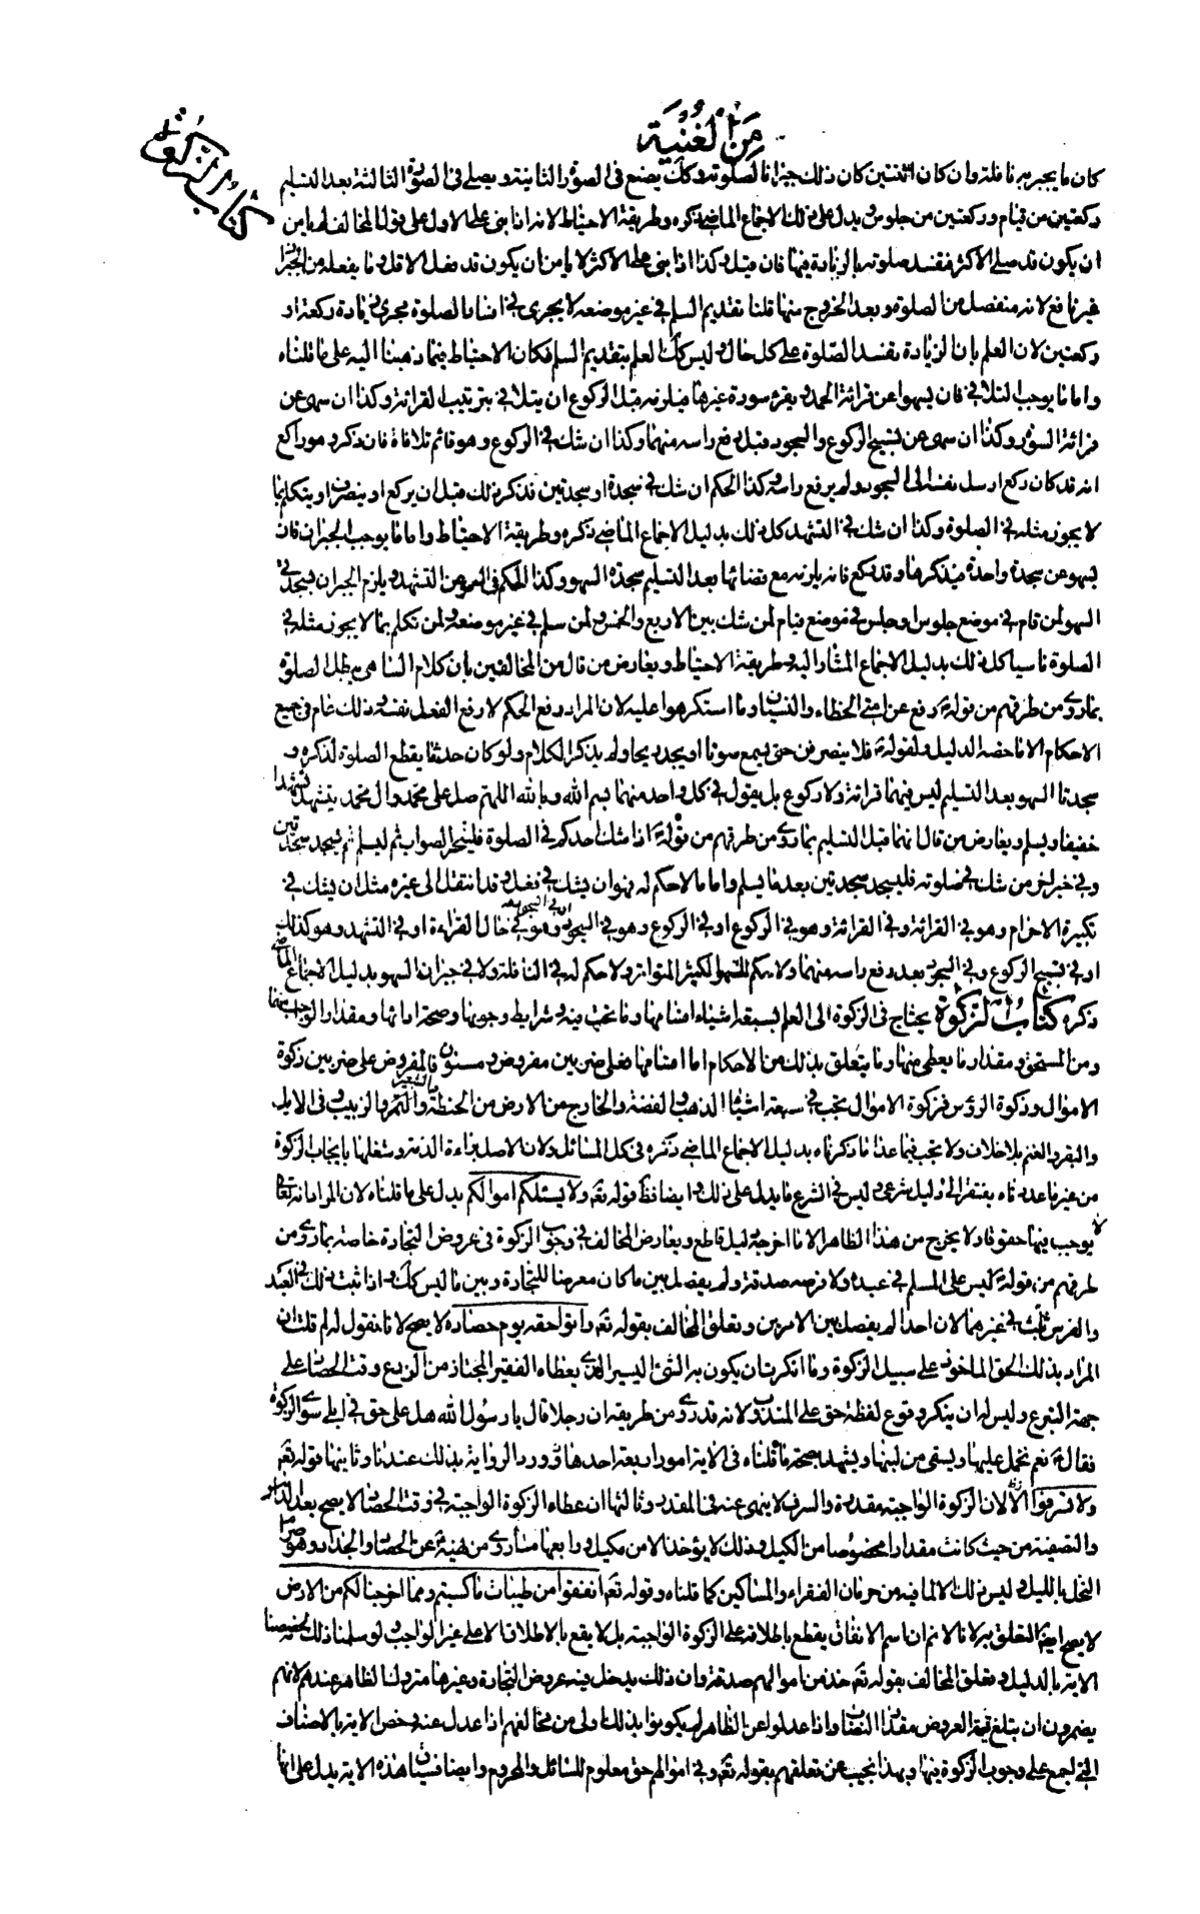 من الغنية
كتاب الزكوة
كان ما يجبر به نافلة وان كان اثنتين كان ذلك جبرانا لصلوته وكك يصنع فى الصورة الثانية ويصلى فى الصورة الثالثة بعد التسليم
ركعتين من قيام وركعتين من جلوس يدل على ذلك الاجماع الماضى ذكره وطريقة الاحتياط لانه اذا بنى على الاول على قول المخالف لم يامن
ان يكون قد صلى الاكثر فتفسد صلوته بالزيادة فيها فان قيل وكذا اذا بنى على الاكثر لا يامن ان يكون قد فعل الاقل وما يفعله من الجبران
غير نافع لانه منفصل من الصلوة وبعد الخروج منها قلنا تقديم السلم فى غير موضعه لا يجرى فى افساد الصلوة مجرى زيادة ركعة او
ركعتين لان العلم بان الزيادة تفسد الصلوة على كل حال وليس كك العلم بتقديم السلم فكان الاحتياط فيما ذهبنا اليه على ما قلناه
واما ما يوجب التلافى فان يسهوا عن قرائة الحمد ويقرء سورة غيرها فيلزمه قبل الركوع ان يتلافى بترتيب القرائة وكذا ان سهى عن
قرائة السورة وكذا ان سهى عن تسبيح الركوع والسجود قبل رفع راسه منهما وكذا ان شك فى الركوع وهو قائم تلافاه فان ذكر وهو راكع
انه قد كان ركع ارسل نفسه الى السجود ولم يرفع راسه وكذا الحكم ان شك فى سجدة او سجدتين فذكر ذلك قبل ان يركع او ينصرف او يتكلم بما
لا يجوز مثله فى الصلوة وكذا ان شك فى التشهد كل ذلك بدليل الاجماع الماضى ذكره وطريقة الاحتياط واما ما يوجب الجبران فان
يسهو عن سجدة واحدة فيذكرها وقد ركع فانه يلزمه مع قضائها بعد التسليم سجدة السهو وكذا الحكم فى السهو عن التشهد ويلزم الجبران بسجدتى
السهو لمن قام فى موضع جلوس او جلس فى موضع قيام لمن شك بين الاربع والخمس ولمن سلم فى غير موضعه ولمن تكلم بما لا يجوز مثله فى
الصلوة ناسيا كل ذلك بدليل الاجماع المشار اليه وطريقة الاحتياط ويعارض من قال من المخالفين بان كلام الساهى يبطل الصلوة
بما روى من طرقهم من قوله رفع عن امتى الخطاء والنسيان وما استكرهوا عليه لان المراد رفع الحكم لا رفع الفعل نفسه وذلك عام فى جميع
الاحكام الا ما خصه الدليل ولقوله فلا ينصرفن حتى يسمع صوتا او يجد ريحا ولم يذكر الكلام ولو كان حدثا يقطع الصلوة لذكره و
سجدتا السهو بعد التسليم ليس فيهما قرائة ولا ركوع بل يقول فى كل واحد منهما بسم الله وبالله اللهم صل على محمد وال محمد يتشهد تشهدا
خفيفا ويسلم ويعارض من قال انهما قبل التسليم بما روى من طرقهم من قوله اذا شك احدكم فى الصلوة فليتحر الصواب ثم ليسلم ثم يسجد سجدتين
وفى خبر اخر من شك فى صلوته فليسجد سجدتين بعد ما يسلم واما ما لا حكم له فهو ان يشك فى فعل وقد انتقل الى غيره مثل ان يشك فى
تكبيرة الاحرام وهو فى القرائة وفى القرائة وهو فى الركوع او فى الركوع وهو فى السجود او فى السجود وهو فى حال القراءة او فى التشهد وهو كذلك
او فى تسبيح الركوع وفى السجود بعد رفع راسه منهما ولا حكم للسهو الكثير المتواتر ولا حكم له فى النافلة ولا فى جبران السهو بدليل الاجماع الماضى
ذكره كتاب الزكوة يحتاج فى الزكوة الى العلم بسبعة اشياء اقسامها وما تجب فيه وشرايط وجوبها وصحة ادائها ومقدار الواجب منها
ومن المستحق ومقدار ما يعطى منها وما يتعلق بذلك من الاحكام اما اقسامها فعلى ضربين مفروض ومسنون فالمفروض على ضربين زكوة
الاموال وزكوة الرؤس فزكوة الاموال تجب فى سبعة اشياء الذهب والفضة والخارج من الارض من الحنطة والشعير والتمر والزبيب وفى الابل
والبقر والغنم بلا خلاف ولا تجب فيما عدا ما ذكرناه بدليل الاجماع الماضى ذكره فى كل المسائل ولان الاصل براءة الذمة وشغلها بايجاب الزكوة
من غير ما عددناه يفتقر الى دليل شرعى وليس فى الشرع ما يدل على ذلك وايضا فظ قوله تع ولا يسئلكم اموالكم يدل على ما قلناه لان المراد انه تعالى
لا يوجب فيها حقوقا ولا يخرج من هذا الظاهر الا ما اخرجه دليل قاطع ويعارض المخالف فى وجوب الزكوة فى عروض التجارة خاصة بما روى من
طرقهم من قوله ليس على المسلم فى عبده ولا فرسه صدقة ولم يفصل بين ما كان معرضا للتجارة وبين ما ليس كك واذا ثبت ذلك فى العبد
والفرس ثبت فى غيرهما لان احدا لم يفصل بين الامرين وتعلق المخالف بقوله تع واتوا حقه يوم حصاده لا يصح لانا نقول له لم قلت ان
المراد بذلك الحق الماخوذ على سبيل الزكوة وما انكرت ان يكون به الشئ اليسير الذى يعطاه الفقير المجتاز من الزرع وقت الحصاد على
جهة التبرع وليس له ان ينكر وقوع لفظة حق على المندوب لانه قد روى من طريقه ان رجلا قال يا رسول الله هل على حق فى ابلى سوى الزكوة
فقال نعم تحمل عليها وتسقى من لبنها ويشهد بصحة ما قلناه فى الاية امور اربعة احدها ورود الرواية بذلك عندنا وثانيها قوله تع
ولا تسرفوا لان الزكوة الواجبة مقدرة والسرف لا ينهى عنه فى المقدر وثالثها ان عطاء الزكوة الواجبة فى وقت الحصاد لا يصح بعد الدياس
والتصفية من حيث كانت مقدارا مخصوصا من الكيل وذلك لا يؤخذ الا من مكيل ورابعها ما روى من نهيه عن الحصاد والجذاذ وهو صرام
النخل بالليل وليس ذلك الا لما فيه من حرمان الفقراء والمساكين كما قلناه وقوله تع انفقوا من طيبات ما كسبتم ومما اخرجنا لكم من الارض
لا يصح ايضا التعلق به لانا لا نم ان اسم الانفاق يقطع باطلاقه على الزكوة الواجبة بل لا يقع بالاطلاق الا على غير الواجب ولو سلمنا ذلك لخصصنا
الاية بالدليل وتعلق المخالف بقوله تع خذ من اموالهم صدقة وان ذلك يدخل فيه عروض التجارة وغيرها متروك الظاهر عندهم لانهم
يضمرون ان يبلغ قيمة العروض مقدار النصاب واذا عدلوا عن الظاهر لم يكونوا بذلك اولى من مخالفهم اذا عدل عنه وخص الاية بالاصناف
التى اجمع على وجوب الزكوة فيها وبهذا نجيب عن تعلقهم بقوله تع وفى اموالهم حق معلوم للسائل والمحروم وايضا فسياق هذه الاية يدل على انها